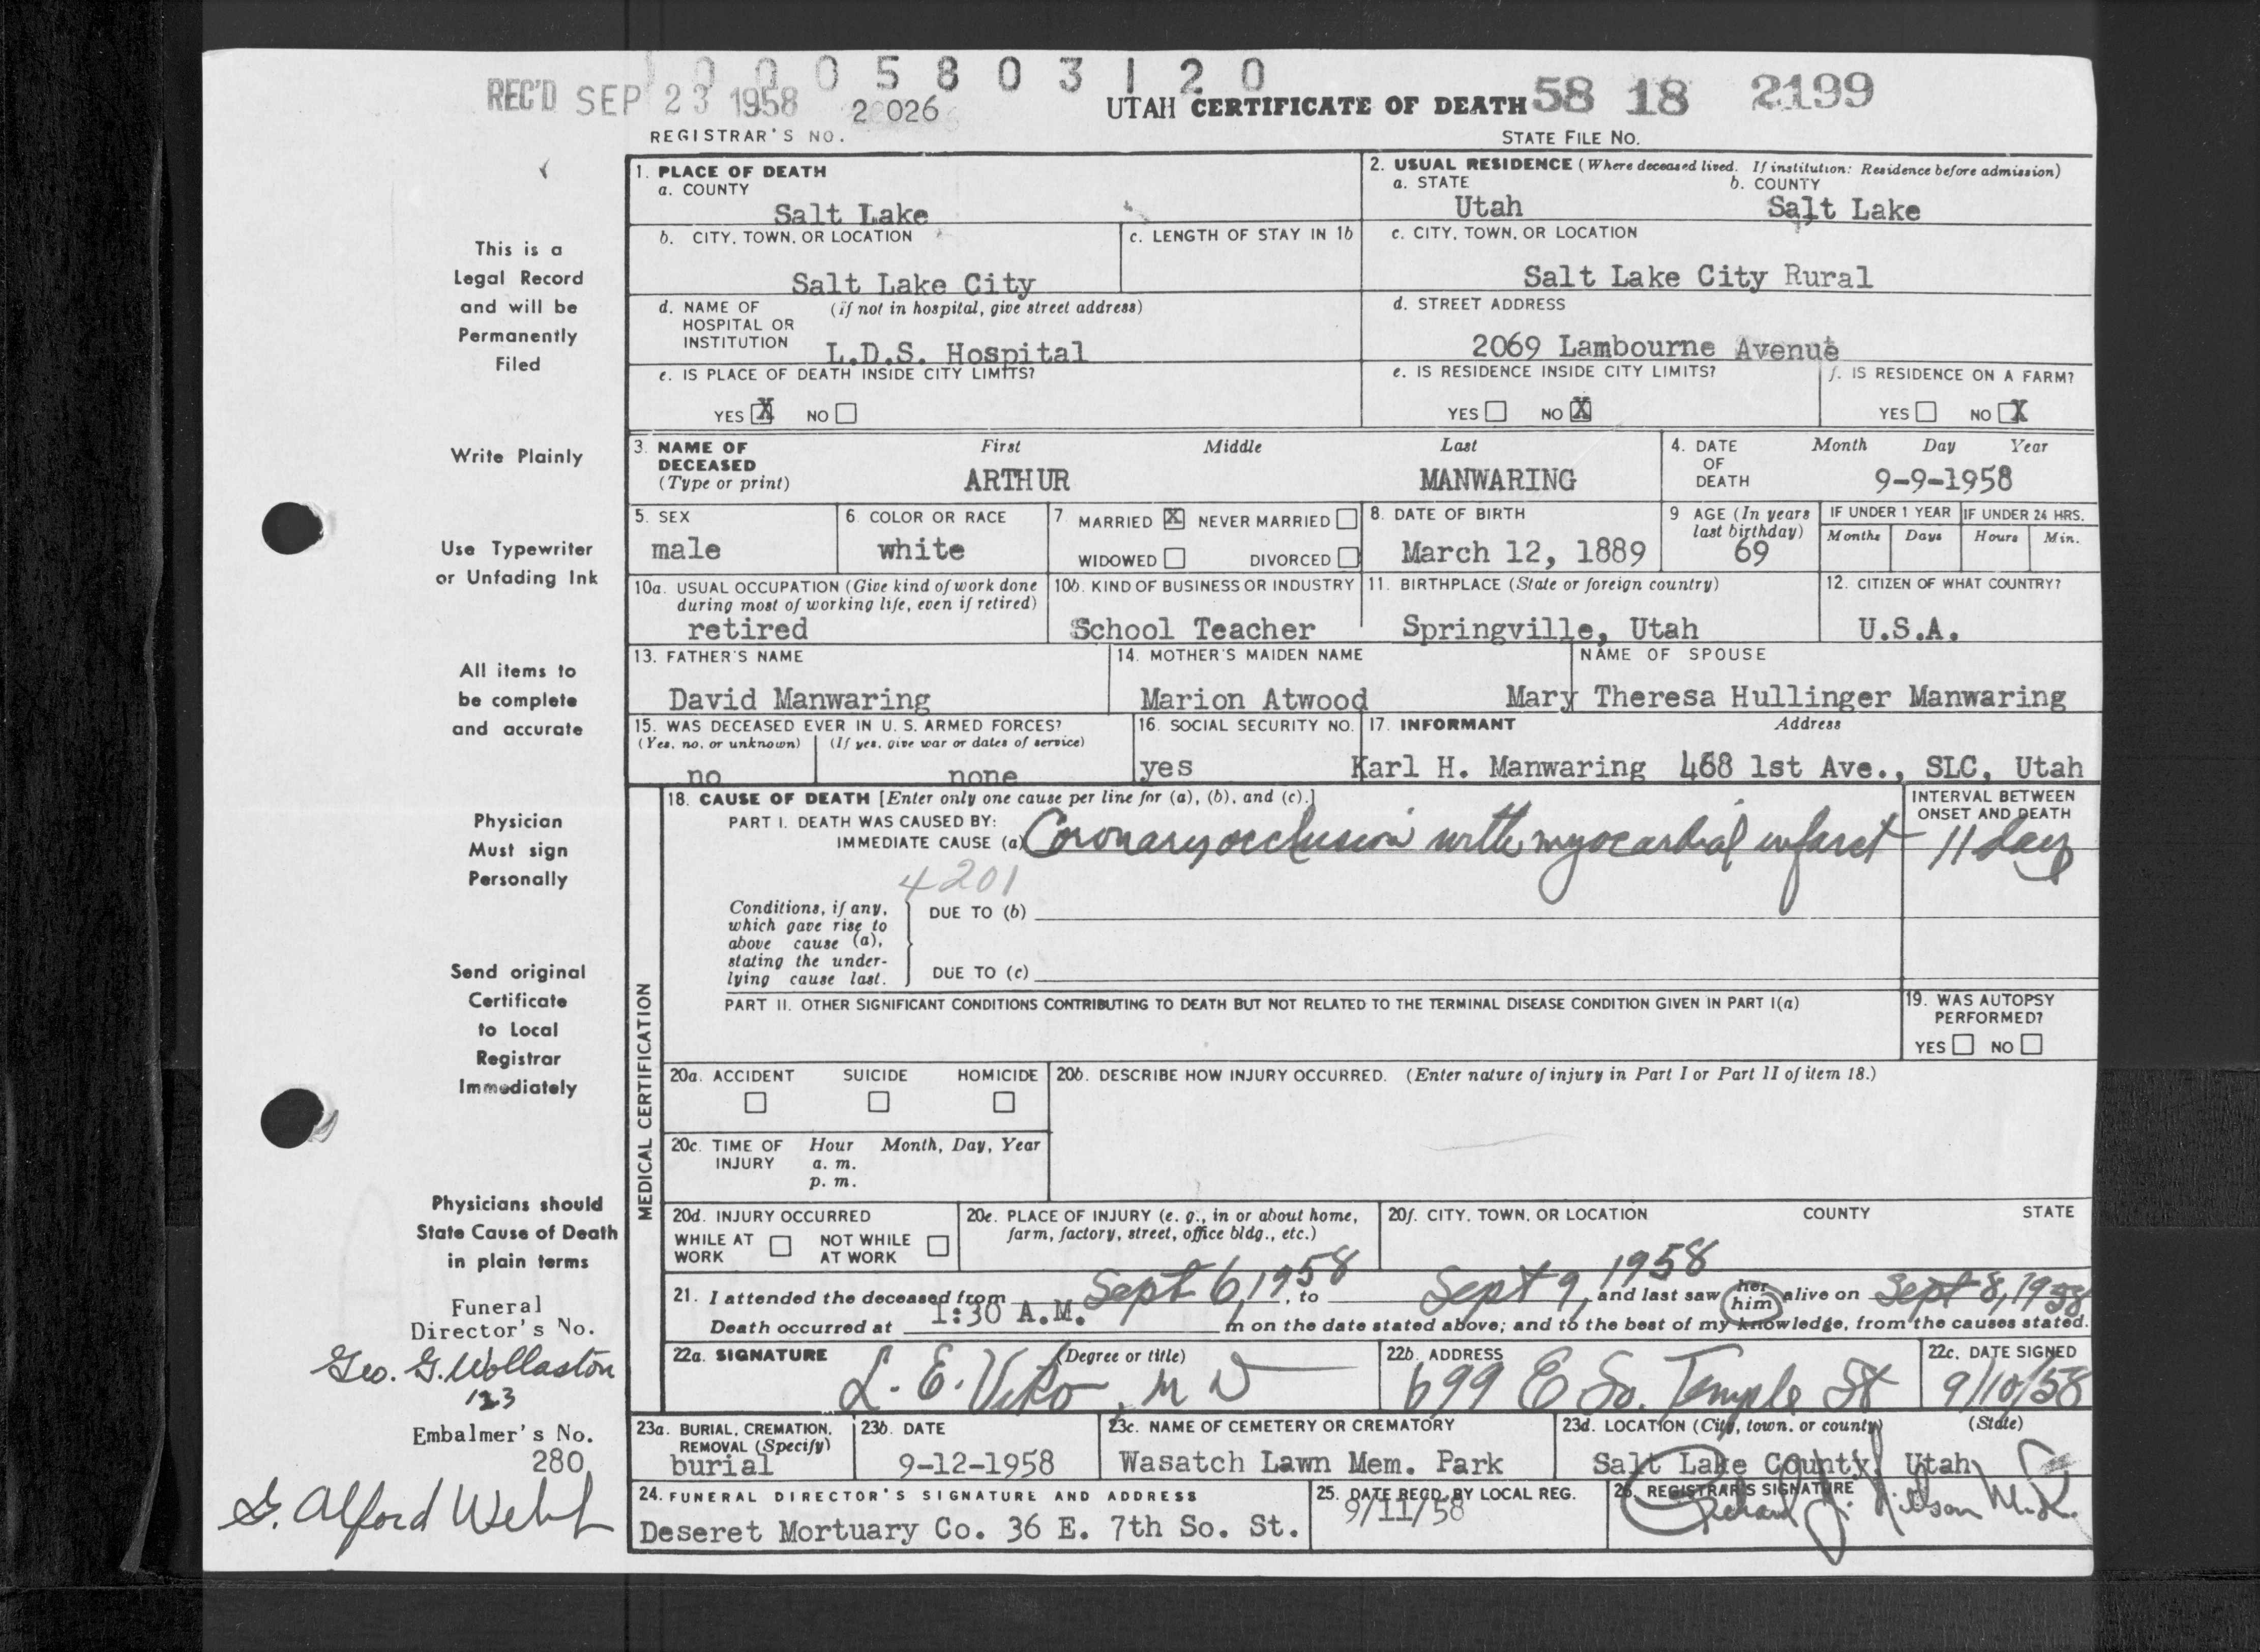 1 0 0 0 5 8 0 3 1 2 0
REC'D SEP 23 1958 2 026 UTAH CERTIFICATE OF DEATH 58 18 2199
REGISTRAR'S NO. STATE FILE NO.
This is a
Legal Record
and will be
Permanently
Filed
Write Plainly
Use Typewriter
or Unfading Ink
All items to
be complete
and accurate
Physician
Must sign
Personally
Send original
Certificate
to Local
Registrar
Immediately
Physicians should
State Cause of Death
in plain terms
Funeral
Director's No.
Geo. G. Wollaston
123
Embalmer's No.
280
G. Alford Webb
1. PLACE OF DEATH
a. COUNTY
Salt Lake
b. CITY, TOWN, OR LOCATION
Salt Lake City
c. LENGTH OF STAY IN 1b
d. NAME OF (if not in hospital, give street address)
HOSPITAL OR
INSTITUTION
L.D.S. Hospital
e. IS PLACE OF DEATH INSIDE CITY LIMITS?
YES X NO
2. USUAL RESIDENCE (Where deceased lived. If institution: Residence before admission)
a. STATE b. COUNTY
Utah Salt Lake
c. CITY, TOWN, OR LOCATION
Salt Lake City Rural
d. STREET ADDRESS
2069 Lambourne Avenue
e. IS RESIDENCE INSIDE CITY LIMITS?
YES NO X
f. IS RESIDENCE ON A FARM?
YES NO X
3. NAME OF First Middle Last
DECEASED
(Type or print) ARTHUR MANWARING
4. DATE Month Day Year
OF
DEATH 9-9-1958
5. SEX
male
6 COLOR OR RACE
white
7 MARRIED X NEVER MARRIED
WIDOWED DIVORCED
8. DATE OF BIRTH
March 12, 1889
9 AGE (In years
last birthday)
69
IF UNDER 1 YEAR IF UNDER 24 HRS.
Months Days Hours Min.
10a. USUAL OCCUPATION (Give kind of work done
during most of working life, even if retired)
retired
10b. KIND OF BUSINESS OR INDUSTRY
School Teacher
11. BIRTHPLACE (State or foreign country)
Springville, Utah
12. CITIZEN OF WHAT COUNTRY?
U.S.A.
13. FATHER'S NAME
David Manwaring
14. MOTHER'S MAIDEN NAME
Marion Atwood
NAME OF SPOUSE
Mary Theresa Hullinger Manwaring
15. WAS DECEASED EVER IN U. S. ARMED FORCES?
(Yes, no, or unknown) (If yes, give war or dates of service)
no none
16. SOCIAL SECURITY NO.
yes
17. INFORMANT Address
Karl H. Manwaring 468 1st Ave., SLC, Utah
MEDICAL CERTIFICATION
18. CAUSE OF DEATH [Enter only one cause per line for (a), (b), and (c).]
PART I. DEATH WAS CAUSED BY:
IMMEDIATE CAUSE (a) Coronary occlusion with myocardial infarct
INTERVAL BETWEEN
ONSET AND DEATH
11 days
4201
Conditions, if any,
which gave rise to
above cause (a),
stating the under-
lying cause last.
DUE TO (b)
DUE TO (c)
PART II. OTHER SIGNIFICANT CONDITIONS CONTRIBUTING TO DEATH BUT NOT RELATED TO THE TERMINAL DISEASE CONDITION GIVEN IN PART I(a)
19. WAS AUTOPSY
PERFORMED?
YES NO
20a. ACCIDENT SUICIDE HOMICIDE
20b. DESCRIBE HOW INJURY OCCURRED. (Enter nature of injury in Part I or Part II of item 18.)
20c. TIME OF Hour Month, Day, Year
INJURY a. m.
p. m.
20d. INJURY OCCURRED
WHILE AT NOT WHILE
WORK AT WORK
20e. PLACE OF INJURY (e. g., in or about home,
farm, factory, street, office bldg., etc.)
20f. CITY, TOWN, OR LOCATION COUNTY STATE
21. I attended the deceased from Sept 6, 1958, to Sept 9, 1958 and last saw her him alive on Sept 8, 1958
Death occurred at 1:30 A.M. m on the date stated above; and to the best of my knowledge, from the causes stated.
22a. SIGNATURE (Degree or title)
L. E. Viko, M D
22b. ADDRESS
699 E So. Temple St
22c. DATE SIGNED
9/10/58
23a. BURIAL, CREMATION,
REMOVAL (Specify)
burial
23b. DATE
9-12-1958
23c. NAME OF CEMETERY OR CREMATORY
Wasatch Lawn Mem. Park
23d. LOCATION (City, town, or county) (State)
Salt Lake County, Utah
24. FUNERAL DIRECTOR'S SIGNATURE AND ADDRESS
Deseret Mortuary Co. 36 E. 7th So. St.
25. DATE RECD. BY LOCAL REG.
9/11/58
26. REGISTRAR'S SIGNATURE